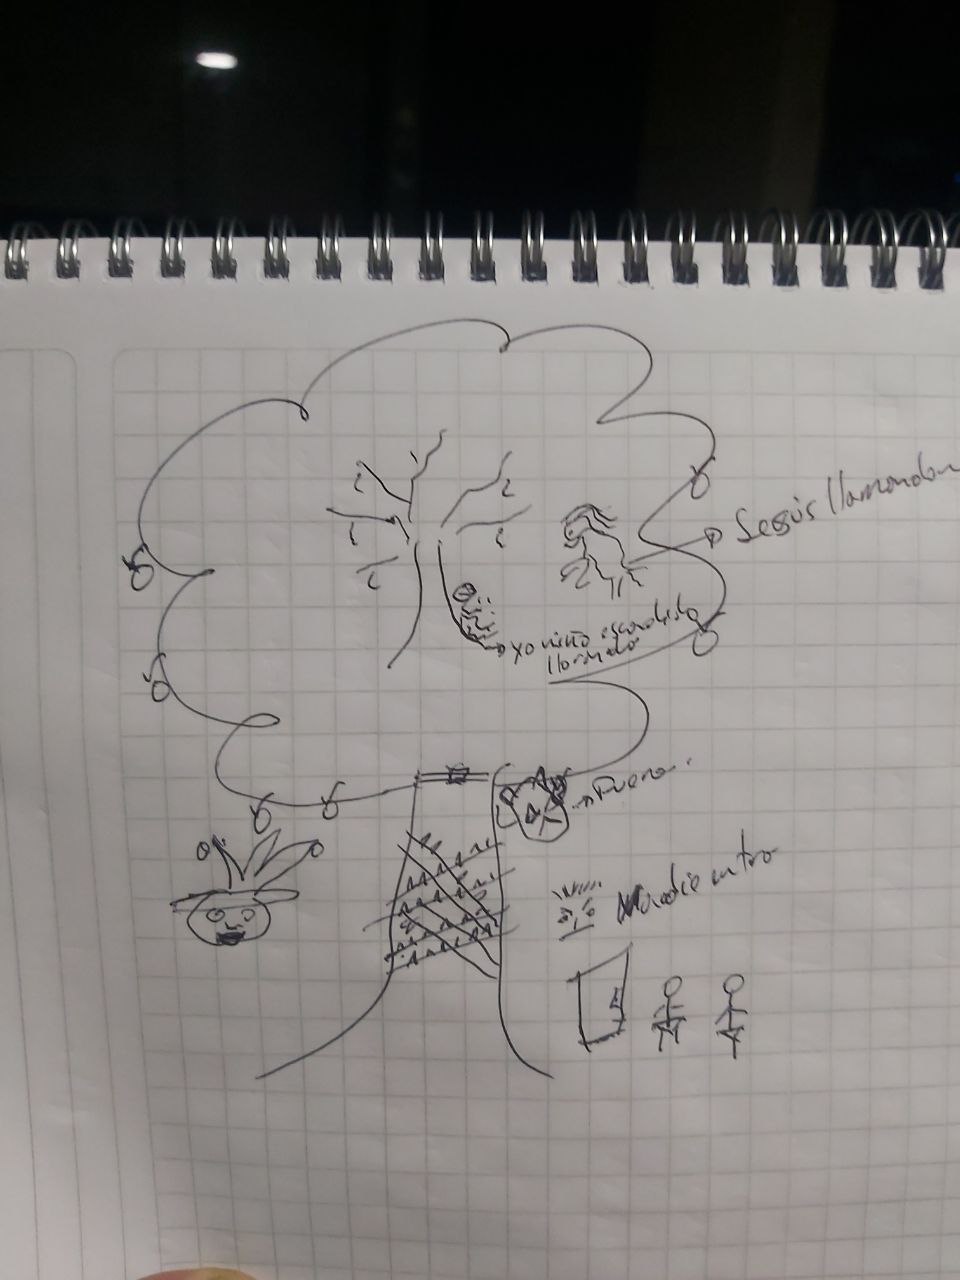 Jesús llamandome
yo niño escondido
llorando
Fuera.
Nadie entro